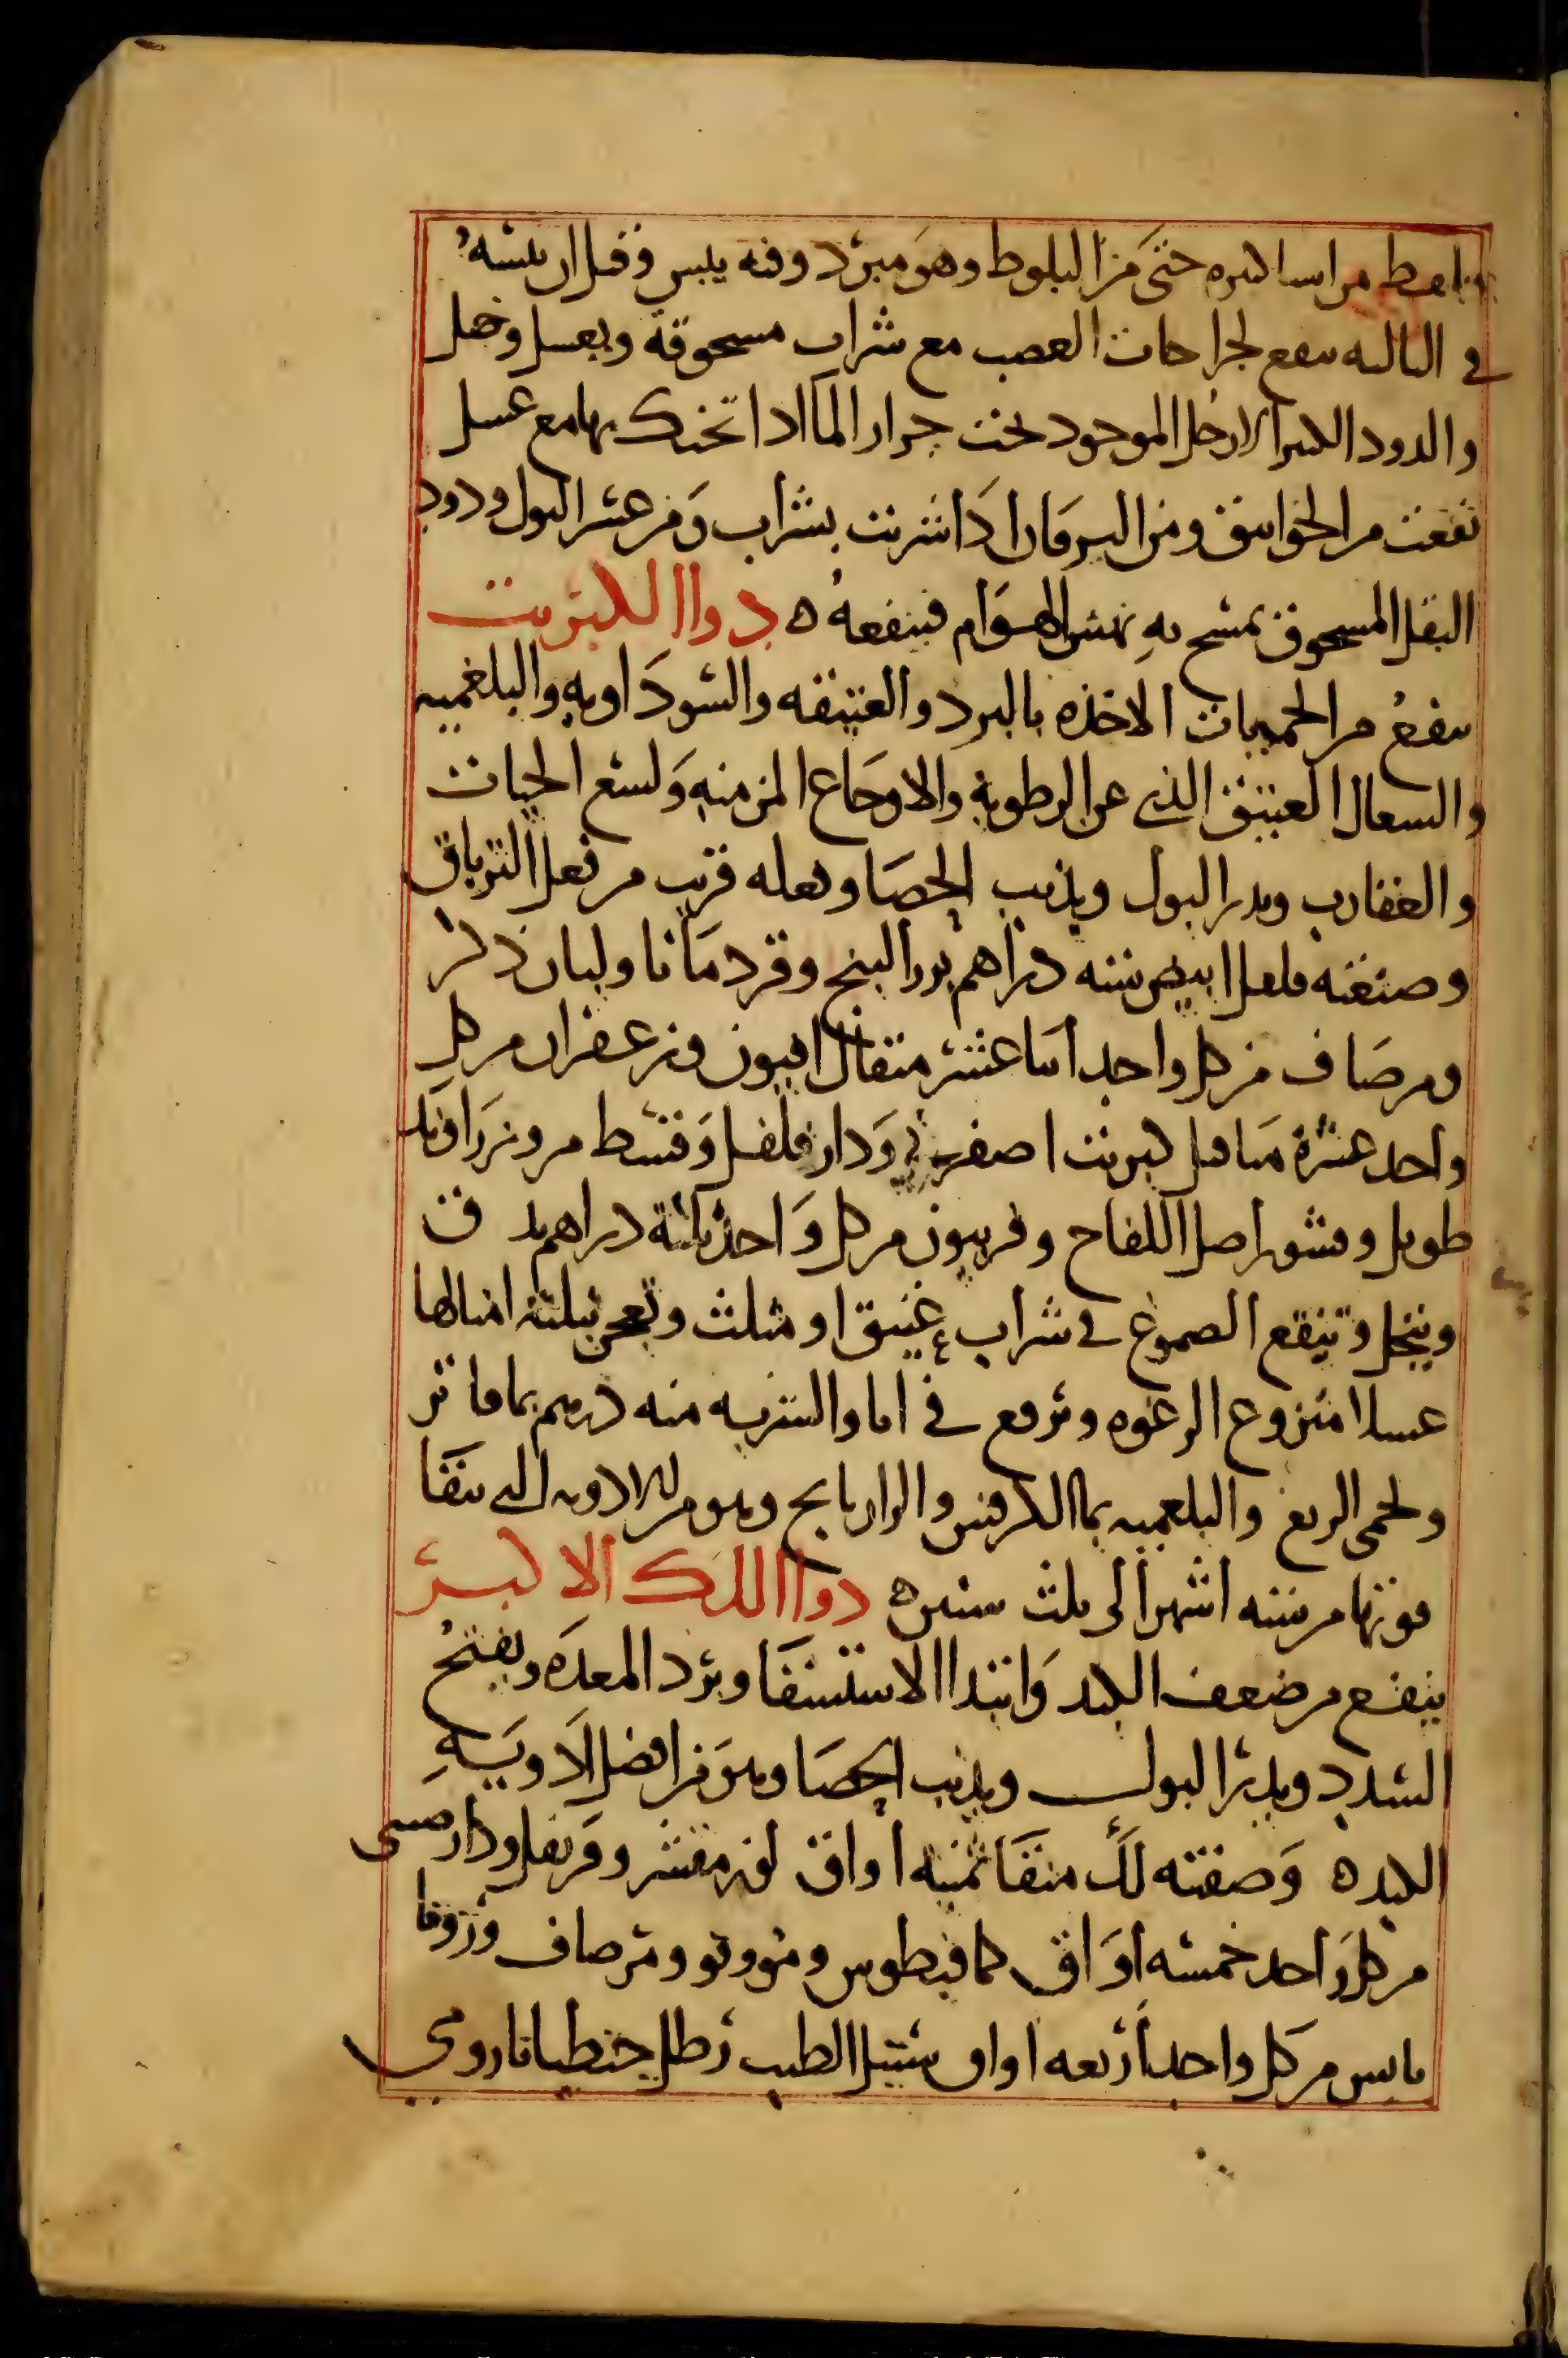 من اشيا كثيره حتى من البلوط وهو مبرد وفيه يبس وقيل ان يبسه
في الثالثه ينفع لجراحات العصب مع شراب مسحوقة وبعسل وخل
والدود الكثير الارجل الموجود تحت جرار الما اذا تحنك بها مع عسل
نفعت من الخوانيق ومن اليرقان اذا شربت بشراب ومن عسر البول ودود
البقل المسحوق يمسح به نهش الهوام فينفعه ه دوا الكبريت
ينفع من الحميات الاخذه بالبرد والعتيقه والسوداويه والبلغميه
والسعال العتيق الذي عن الرطوبة والاوجاع المزمنه ولسع الحيات
والعقارب ويدر البول ويذيب الحصا وفعله قريب من فعل الترياق
وصنعته فلفل ابيض سته دراهم بزر البنج وقردمانا ولبان ذكر
ومر صاف من كل واحد اثنا عشر مثقال افيون وزعفران من كل
واحد عشرة مثاقيل كبريت اصفر ودار فلفل وقسط مر وزراوند
طويل وقشور اصل اللفاح وفربيون من كل واحد ثلثة دراهم يدق
وينخل وتنقع الصموغ في شراب عتيق او مثلث ويعجن بثلثة امثالها
عسلا منزوع الرغوه وترفع في انا والشربه منه درهم بما فاتر
ولحمى الربع والبلغميه بما الكرفس والرازيانج وهو من الادويه التي تبقا
قوتها من سته اشهر الى ثلث سنين ه دوا اللك الاكبر
ينفع من ضعف الكبد وابتدا الاستسقا وبرد المعده ويفتح
السدد ويدر البول ويذيب الحصا وهو من افضل الادويه
الكبده وصفته لك منقا ثمنيه اواق لوز مقشر وقرنفل ودارصيني
من كل واحد خمسه اواق كمافيطوس وفو ومر صاف وزوفا
يابس من كل واحد اربعه اواق سنبل الطيب رطل جنطيانا رومي